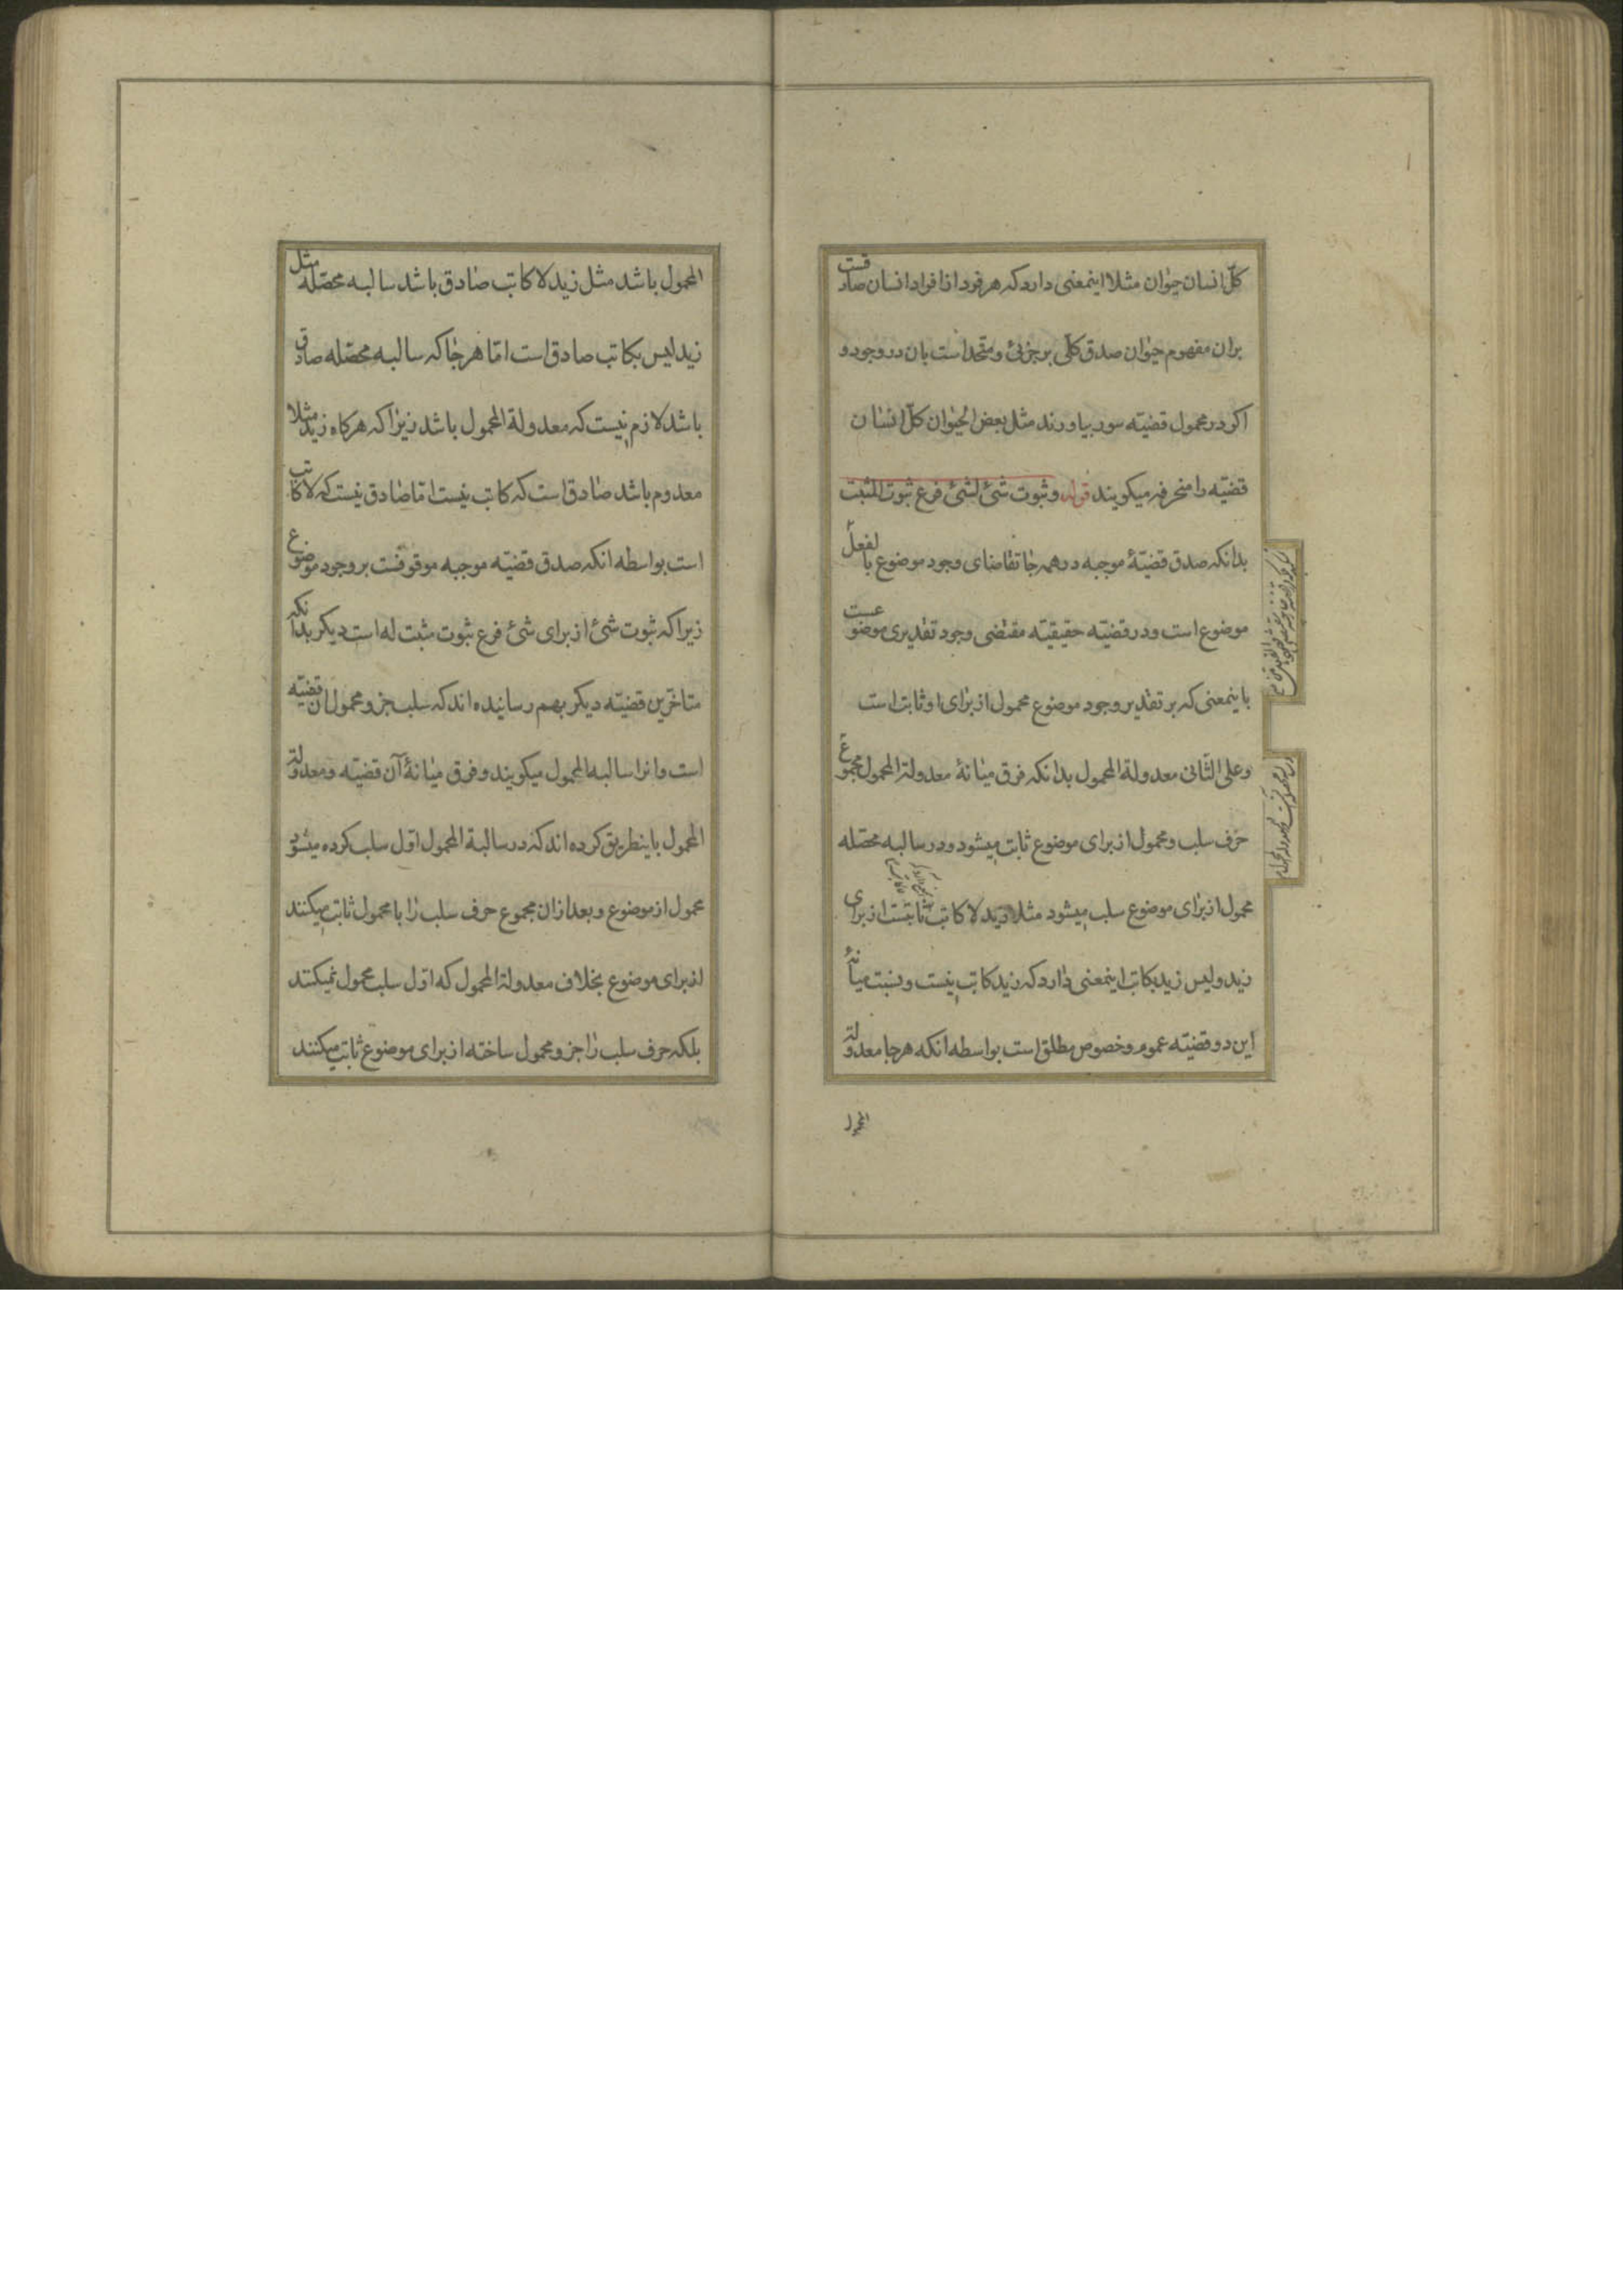 کلّ انسان حیوان مثلا اینمعنی دارد که هر فرد از افراد انسان صادقست
بران مفهوم حیوان صدق کلّی بر جزئی و متحد است بان در وجود و
اکر در محمول قضیّه سور بیاورند مثل بعض الحیوان کلّ انسان
قضیّه را منحرفه میکویند قوله و ثبوت شئ لشئ فرع ثبوت المثبت
بدانکه صدق قضیّهٔ موجبه در همه جا تقاضای وجود موضوع بالفعل
موضوع است و در قضیّه حقیقیّه مقتضی وجود تقدیری موضوعست
باینمعنی که بر تقدیر وجود موضوع محمول از برای او ثابت است
وعلی الثانی معدولة المحمول بدانکه فرق میانهٔ معدولة المحمول مجموع
حرف سلب و محمول از برای موضوع ثابت میشود و در سالبه محصّله
محمول از برای موضوع سلب میشود مثلا زید لا کاتب ثابتست از برای
زید و لیس زید بکاتب اینمعنی دارد که زید کاتب نیست و نسبت میانهٔ
این دو قضیّه عموم و خصوص مطلق است بواسطه انکه هر جا معدولة
المحمول
المحمول باشد مثل زید لا کاتب صادق باشد سالبه محصّله مثل
زید لیس بکاتب صادق است امّا هر جا که سالبه محصّله صادق
باشد لازم نیست که معدولة المحمول باشد زیرا که هرکاه زید مثلا
معدوم باشد صادق است که کاتب نیست امّا صادق نیست که لا کاتب
است بواسطه انکه صدق قضیّه موجبه موقوفست بر وجود موضوع
زیرا که ثبوت شئ از برای شئ فرع ثبوت مثبت له است دیکر بدانکه
متاخّرین قضیّه دیکر بهم رسانیده اند که سلب جزو محمول ان قضیّه
است و انرا سالبه المحمول میکویند و فرق میانهٔ آن قضیّه و معدولة
المحمول باینطریق کرده اند که در سالبة المحمول اوّل سلب کرده میشود
محمول از موضوع و بعد ازان مجموع حرف سلب را با محمول ثابت میکنند
از برای موضوع بخلاف معدولة المحمول که اوّل سلب محمول نمیکنند
بلکه حرف سلب را جزو محمول ساخته از برای موضوع ثابت میکنند